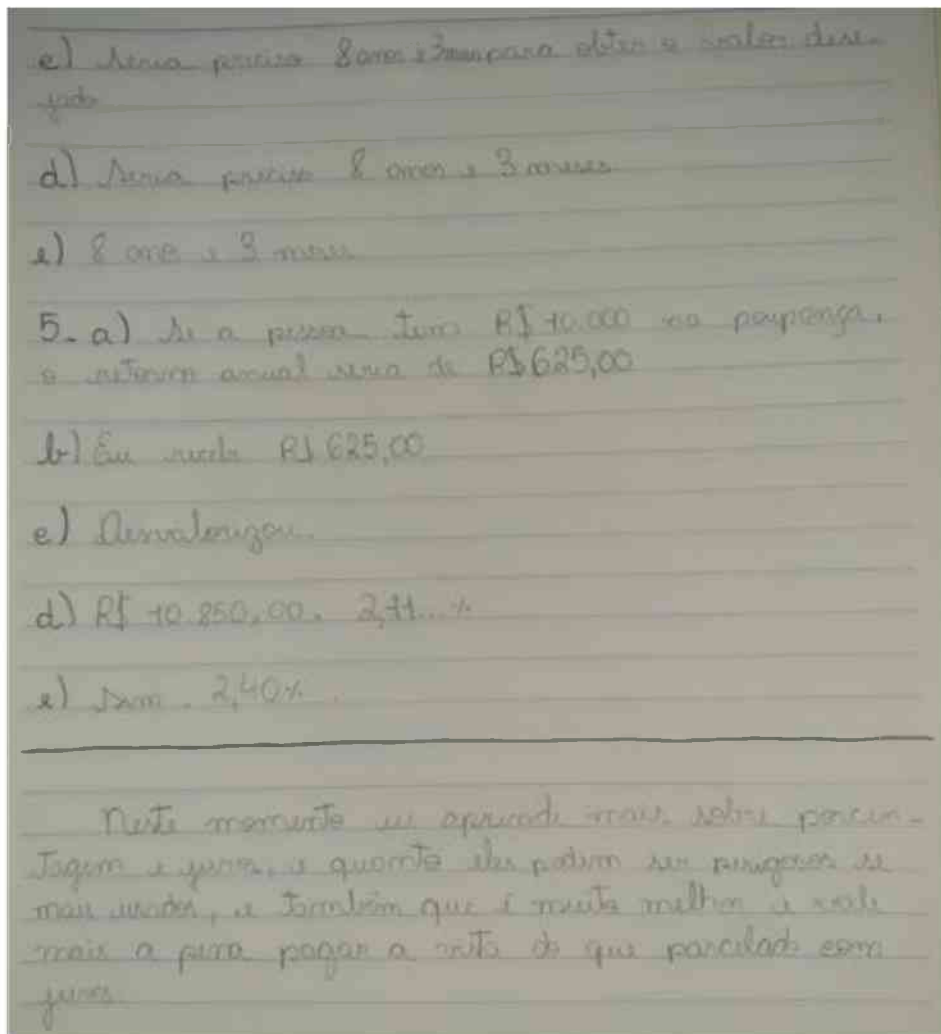 c) Seria preciso 8 anos e 3 meses para obter o valor dese-
jado
d) Seria preciso 8 anos e 3 meses
e) 8 anos e 3 meses
5. a) Se a pessoa tem R$ 10.000 na poupança,
o retorno anual seria de R$ 625,00
b) Eu recebi R$ 625,00
c) Desvalorizou.
d) R$ 10.850,00. 2,11...%
e) Sim. 2,40%.
Neste momento eu aprendi mais sobre porcen-
tagem e juros, e quanto eles podem ser perigosos se
mau usados, e também que é muito melhor e vale
mais a pena pagar a vista do que parcelado com
juros.